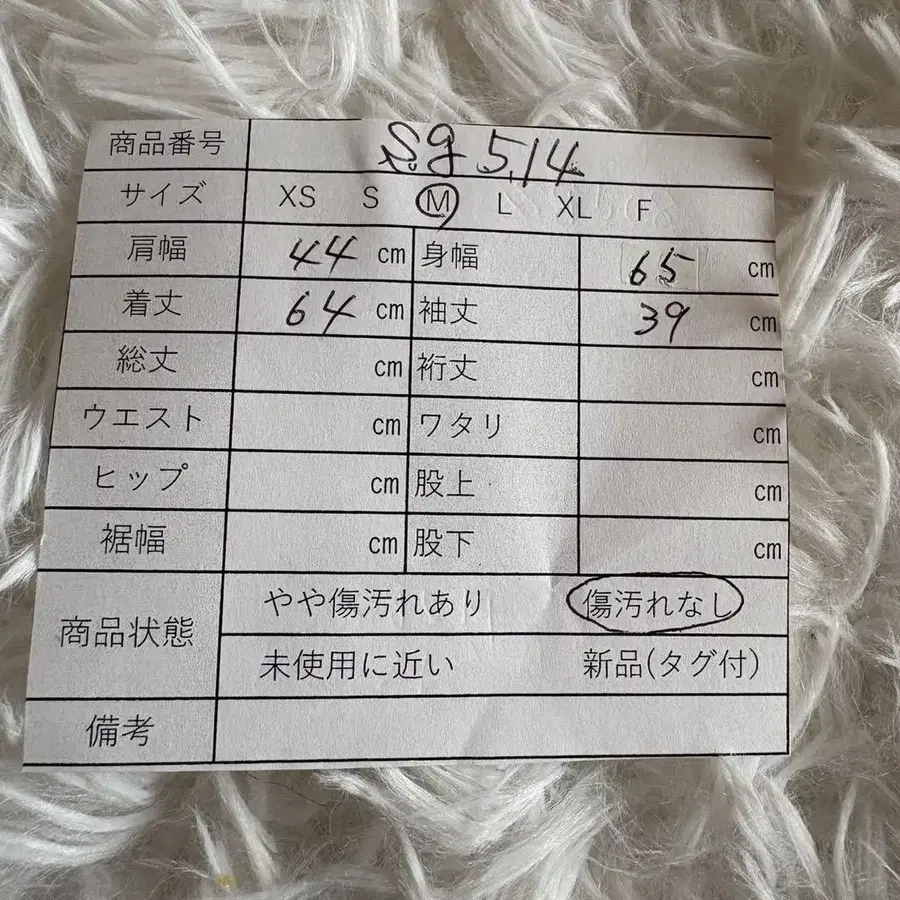 商品番号 sg514
サイズ XS S M L XL F
肩幅 44 cm 身幅 65 cm
着丈 64 cm 袖丈 39 cm
総丈 cm 裄丈 cm
ウエスト cm ワタリ cm
ヒップ cm 股上 cm
裾幅 cm 股下 cm
商品状態 やや傷汚れあり 傷汚れなし
未使用に近い 新品(タグ付)
備考